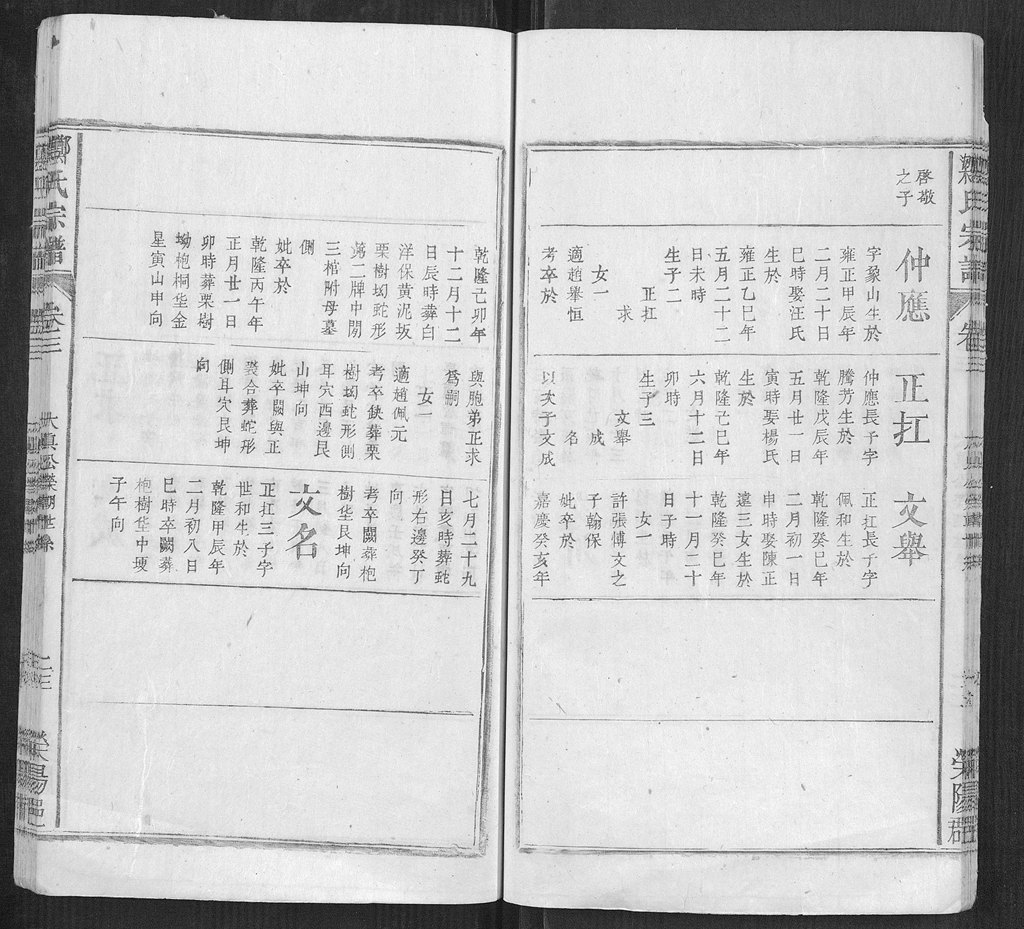 啓敬
之子
仲應
字象山生於
雍正甲辰年
二月二十日
巳時娶汪氏
生於
雍正乙巳年
五月二十二
日未時
生子二
正扛
求
女一
適趙舉恒
考卒於
正扛
仲應長子字
騰芳生於
乾隆戊辰年
五月廿一日
寅時娶楊氏
生於
乾隆己巳年
六月十二日
卯時
生子三
文舉
成
名
以次子文成
文舉
正扛長子字
佩和生於
乾隆癸巳年
二月初一日
申時娶陳正
遠三女生於
乾隆癸巳年
十一月二十
日子時
女一
許張傅文之
子翰保
妣卒於
嘉慶癸亥年
榮陽郡
乾隆己卯年
十二月十二
日辰時葬白
洋保黃泥坂
栗樹㘭蛇形
第二牌中開
三棺附母墓
側
妣卒於
乾隆丙午年
正月廿一日
卯時葬栗樹
㘭枹桐垡金
星寅山申向
與胞弟正求
爲嗣
女一
適趙佩元
考卒缺葬栗
樹㘭蛇形側
耳穴西邊艮
山坤向
妣卒闕與正
裘合葬蛇形
側耳穴艮坤
向
七月二十九
日亥時葬蛇
形右邊癸丁
向
考卒闕葬枹
樹垡艮坤向
文名
正扛三子字
世和生於
乾隆甲辰年
二月初八日
巳時卒闕葬
枹樹垡中埂
子午向
鄭氏宗譜
卷三